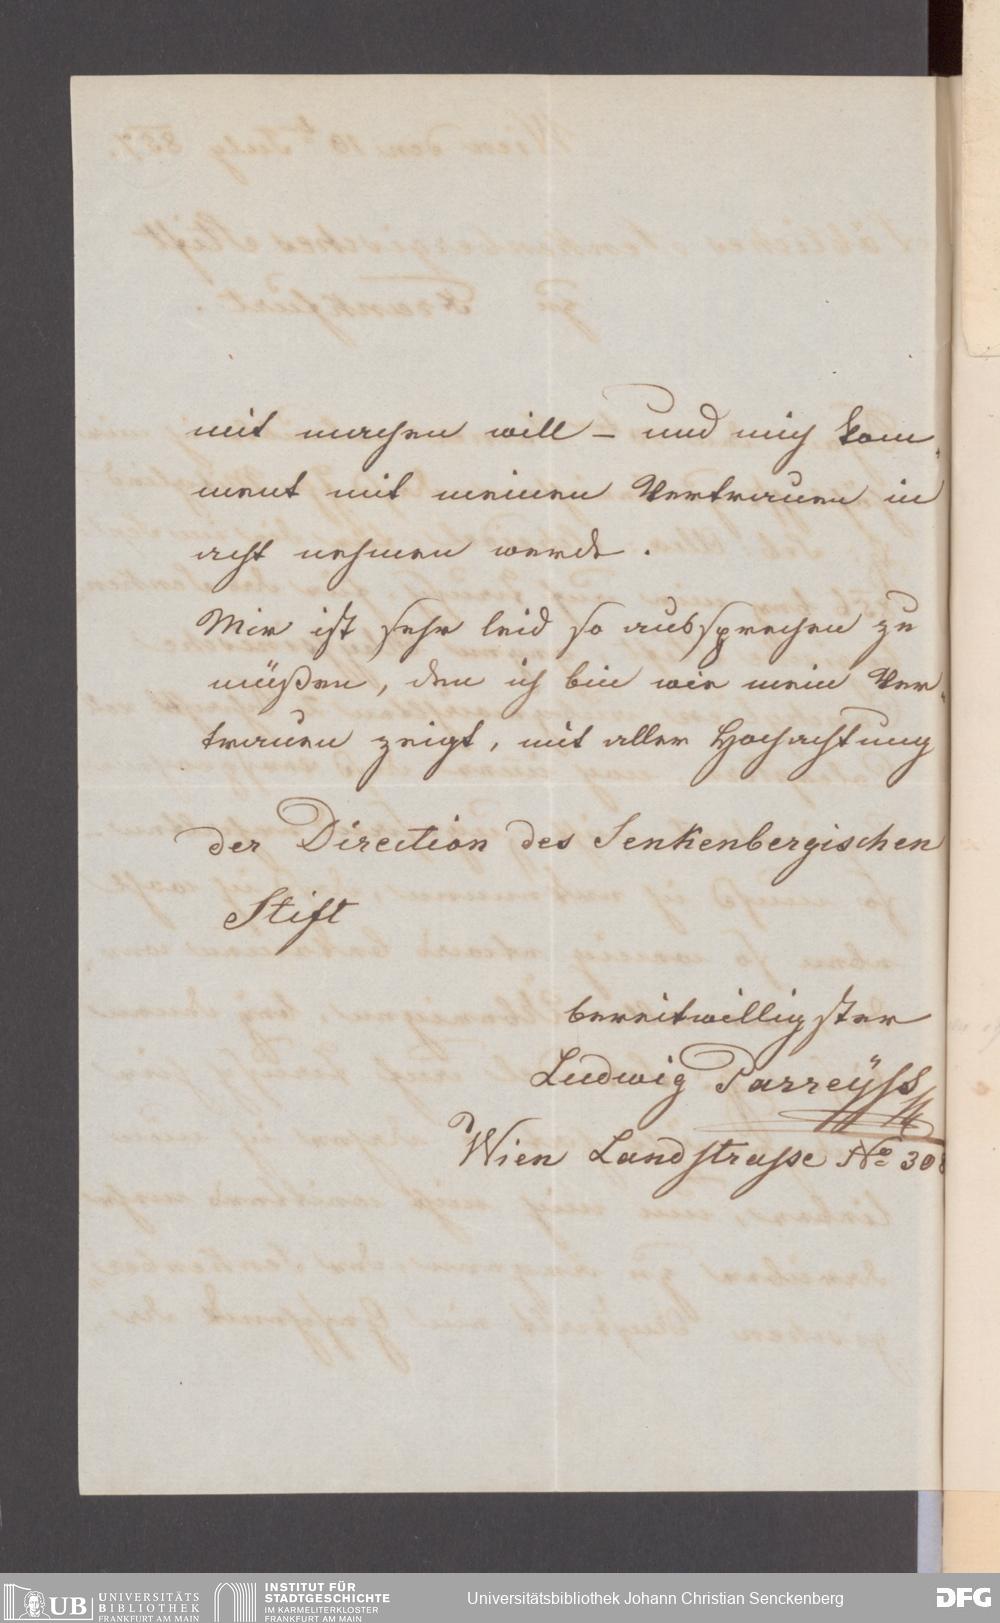 mit machen will – und mich kom¬
ment mit meinen Vertrauen in
acht nehmen werde.
Mir ist sehr leid so aussprechen zu
müßen, den ich bin wie mein Ver¬
trauen zeigt, mit aller Hochachtung
der Direction des Senkenbergischen
Stift
bereitwilligster
Ludwig Parreyss
Wien Landstrasse No 308
UB UNIVERSITÄTS
BIBLIOTHEK
FRANKFURT AM MAIN
INSTITUT FÜR
STADTGESCHICHTE
IM KARMELITERKLOSTER
FRANKFURT AM MAIN
Universitätsbibliothek Johann Christian Senckenberg
DFG